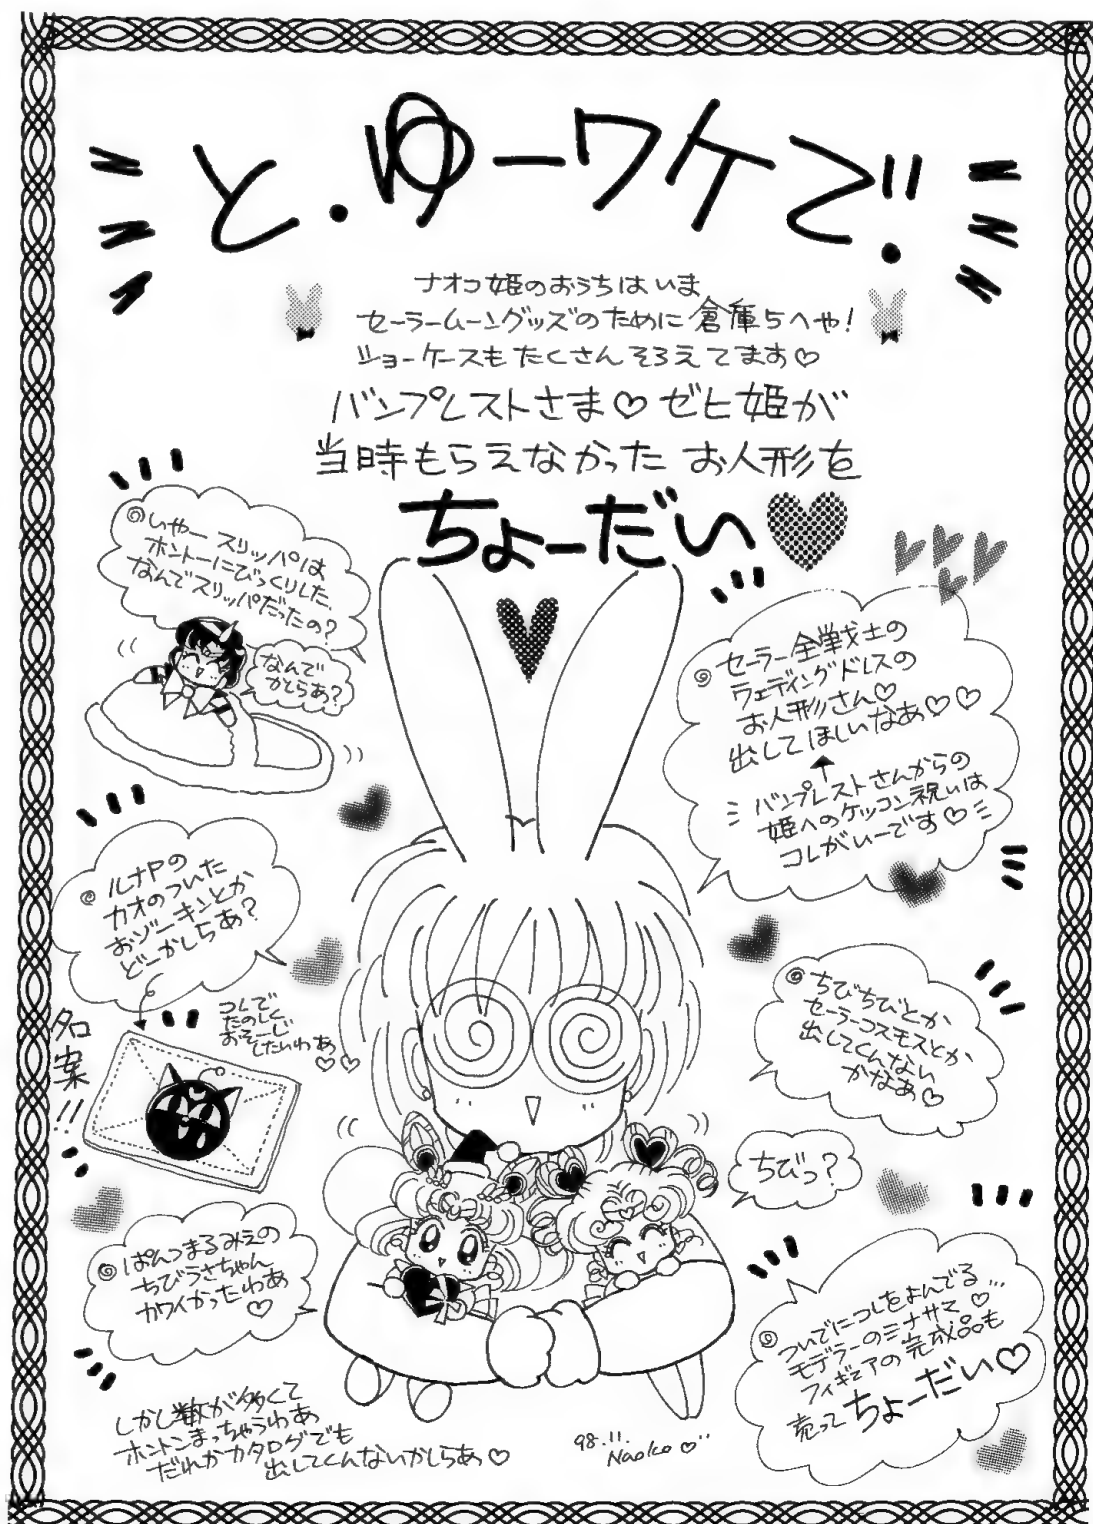 と.ゆーワケで!!
ナオコ姫のおうちはいま
セーラームーングッズのために倉庫5へや!
ショーケースもたくさんそろえてます♡
バンプレストさま♡ゼヒ姫が
当時もらえなかったお人形を
ちょーだい
◎いやースリッパは
ホントーにびっくりした、
なんでスリッパだったの?
なんで
かしらあ?
◎セーラー全戦士の
ウェディングドレスの
お人形さん♡
出してほしいなあ♡♡♡
↑
バンプレストさんからの
姫へのケッコン祝いは
コレがいーです♡
◎ルナPの
カオのついた
おゾーキンとか
どーかしらあ?
コレで
たのしく
おそーじ
したいわあ
♡♡
名案!!
◎ちびちびとか
セーラーコスモスとか
出してくんない
かなあ♡
ちびっ?
◎ぱんつまるみえの
ちびうさちゃん
カワイかったわあ
♡
◎ついでにコレをよんでる…
モデラーのミナサマ♡
フィギュアの完成品も
売ってちょーだい♡
しかし数が多くて
ホントこまっちゃうわあ
だれかカタログでも
出してくんないかしらあ♡
98.11.
Naoko♡